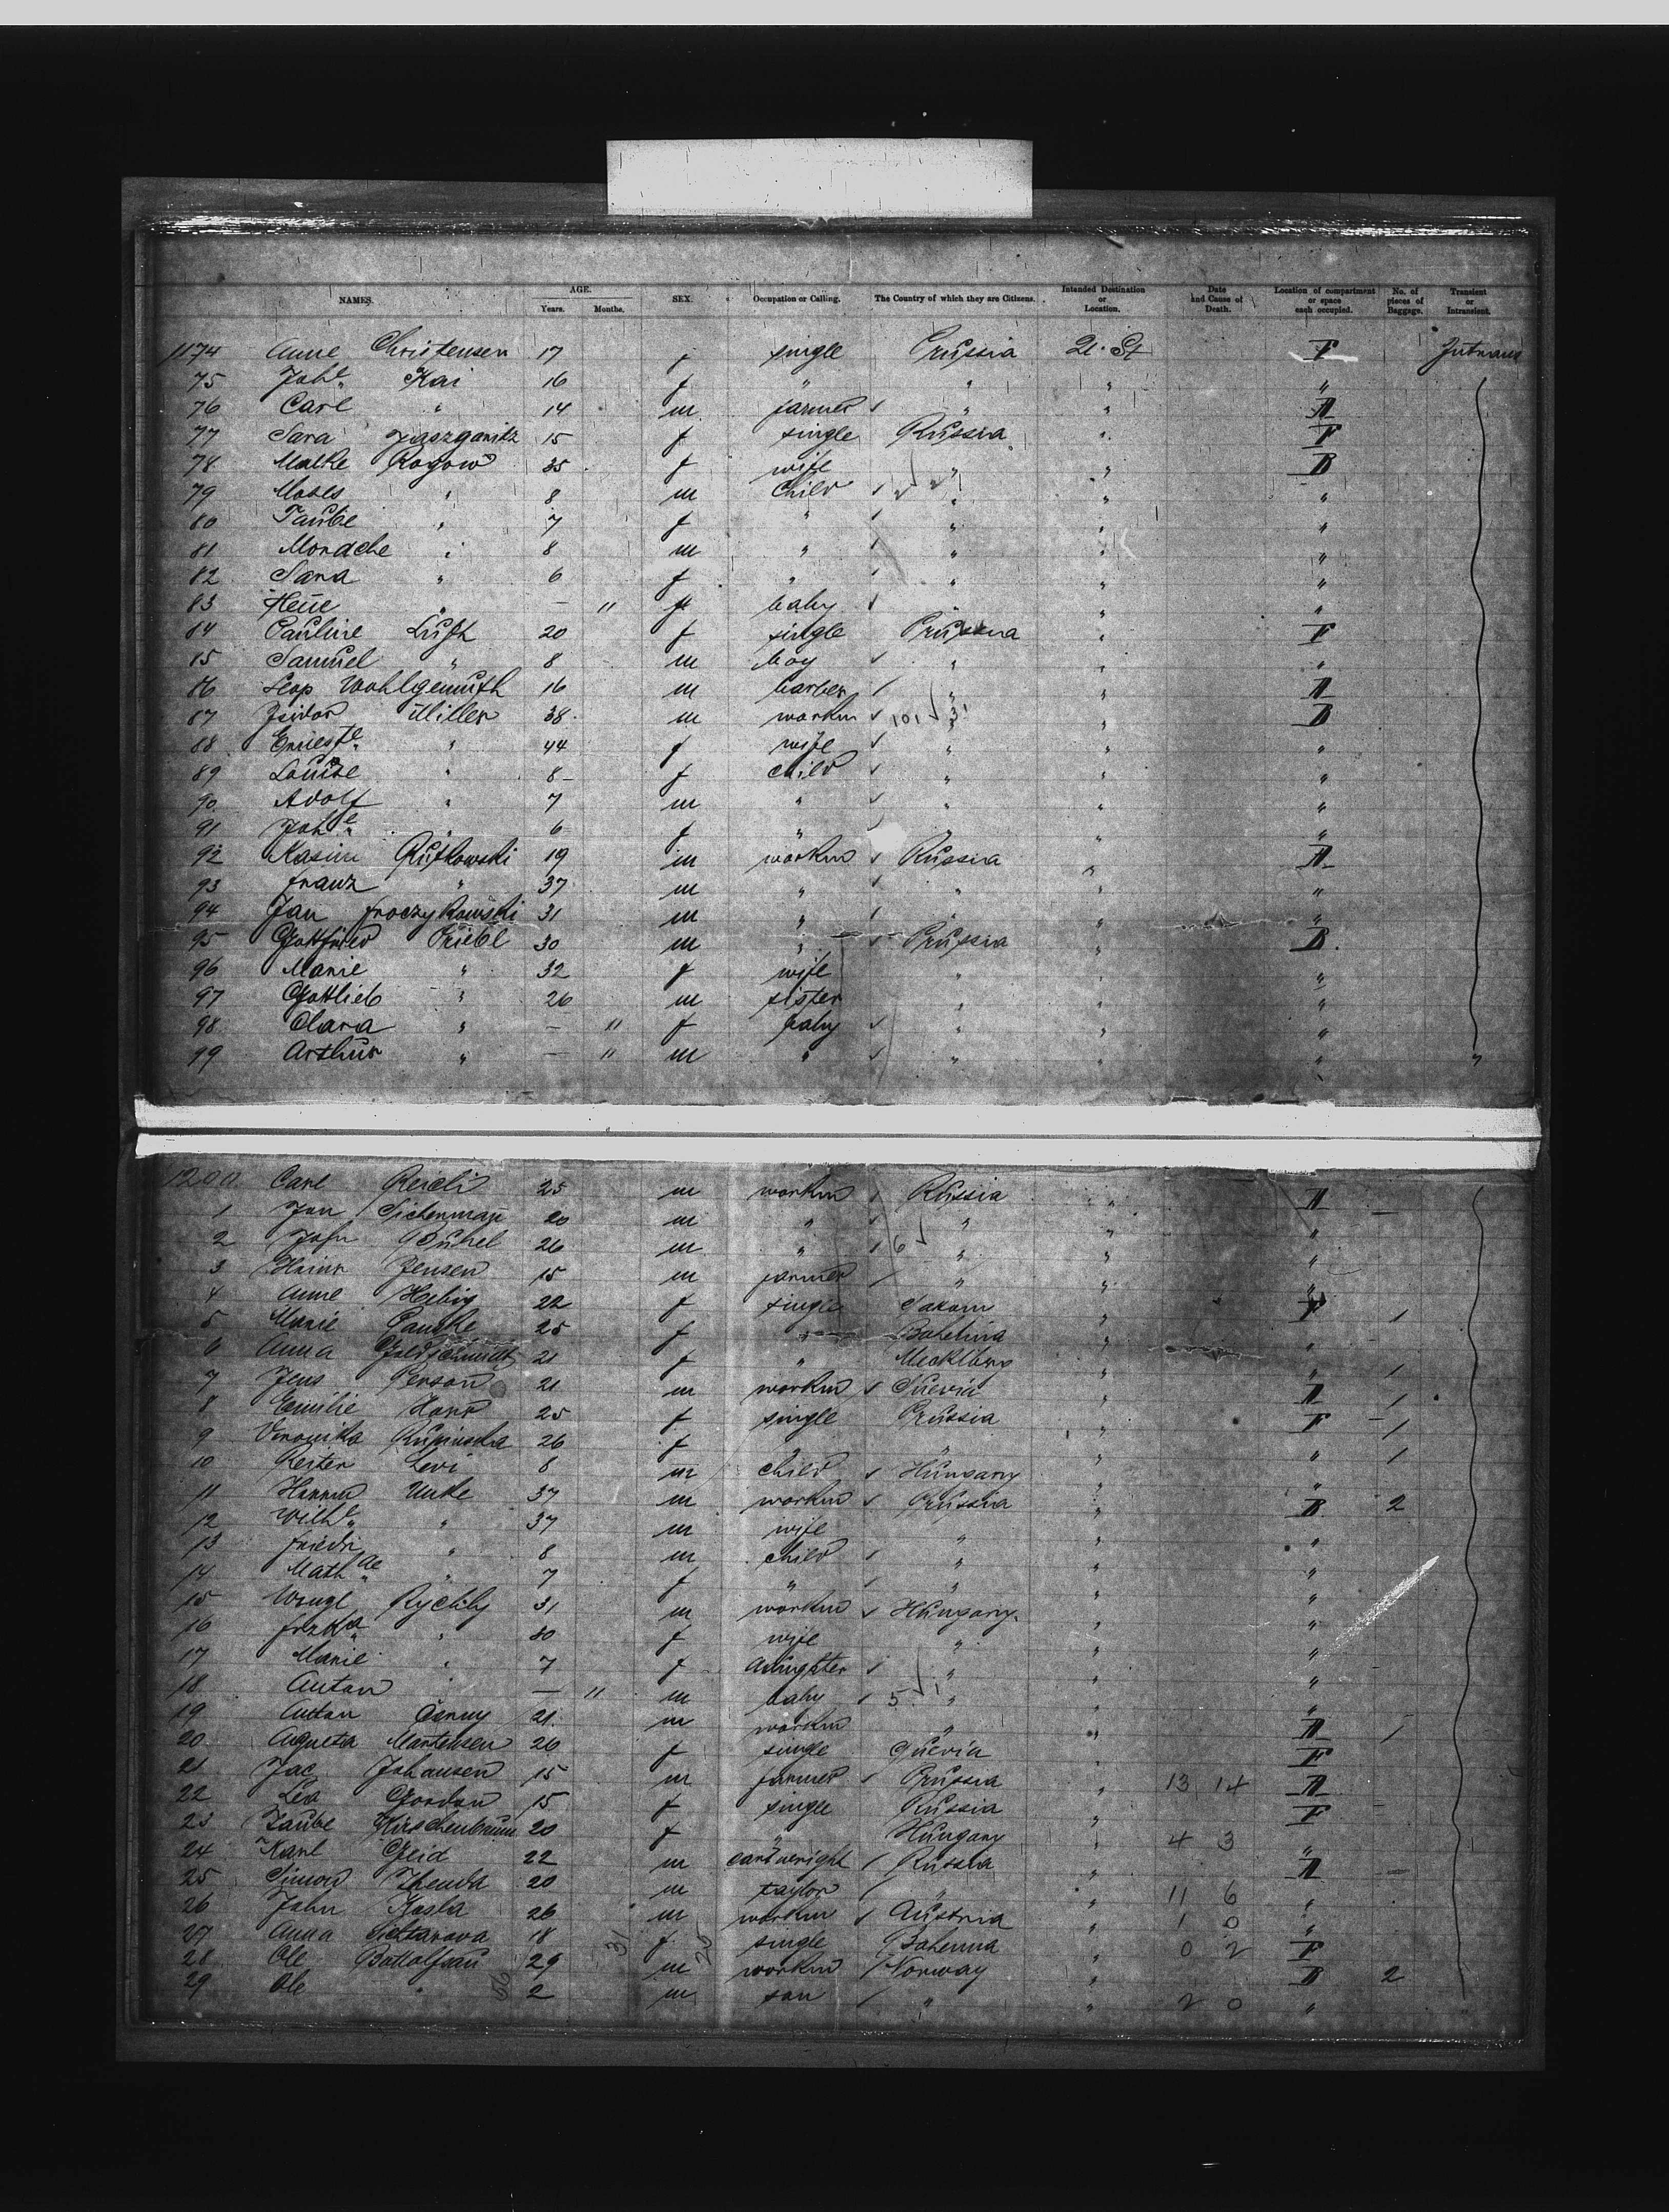 NAMES. AGE. Years. Months. SEX. Occupation or Calling. The Country of which they are Citizens. Intended Destination or Location. Date and Cause of Death. Location of compartment or space each occupied. No. of pieces of Baggage. Transient or Intransient.
1174 Anne Christensen 17 f single Prussia U. St F Intrans
75 Johe Kai 16 f " " " "
76 Carl " 14 m farmer " " A
77 Sara 15 f single Russia " F
78 Malke Rogow 35 f wife " " B
79 Moses " 8 m child " " "
80 Taube " 7 f " " " "
81 Mordche " 8 m " " " "
82 Sara " 6 f " " " "
83 " — 11 f baby " " "
84 Pauline 20 f single Prussia " F
85 Samuel " 8 m boy " " "
86 Leop Wohlgemuth 16 m barber " " A
87 Isidor Miller 38 m workm 101 31 " " B
88 Erneste " 44 f wife " " "
89 Louise " 8 f child " " "
90 Adolf " 7 m " " " "
91 Johe " 6 f " " " "
92 Kasim Rutkowski 19 m workm Russia " A
93 Franz " 37 m " " " "
94 Jan 31 m " " " "
95 Gottfried Friebl 30 m " Prussia " B
96 Marie " 32 f wife " " "
97 Gottlieb " 26 m sister " " "
98 Clara " — 11 f baby " " "
99 Arthur " — 11 m " " " " "
1200 Carl Reich 25 m workm Russia " A
1 Jan 20 m " " " "
2 John 26 m " 6 " " "
3 Heinr Jensen 15 m farmer " " "
4 Anne Helbig 22 f single " F 1
5 Marie 25 f " " "
6 Anna Goldschmidt 21 f " Mecklbrg " " 1
7 Jens Person 21 m workm Suevia " A 1
8 Emilie 25 f single Prussia " F 1
9 Veronika Rupinska 26 f " " " " 1
10 Levi 8 m child Hungary " "
11 Unke 37 m workm Prussia " B 2
12 Wilhe " 37 m wife " " "
13 Friedr " 8 m child " " "
14 Mathde " 7 f " " " "
15 Rychly 31 m workm Hungary " "
16 " 30 f wife " " "
17 Marie " 7 f daughter " " "
18 Anton " — 11 m baby 5 1 " " "
19 Anton Cerny 21 m workm " " A 1
20 Agneta Martensen 26 f single Suevia " F
21 Jac Johansen 15 m farmer Prussia " 13 14 A
22 Lea Gordon 15 f single Russia " F
23 Taube Kirschenbaum 20 f " Hungary " 4 3 "
24 Karl Geid 22 m cartwright Russia " A
25 Simon 20 m taylor " " 11 6 "
26 John Kosla 26 m workm Austria " 1 0 "
27 Anna 18 31 f 25 single Bohemia " 0 2 F
28 Ole Bottolfsen 29 m workm Norway " B 2
29 Ole " 56 2 m son " " 2 0 "